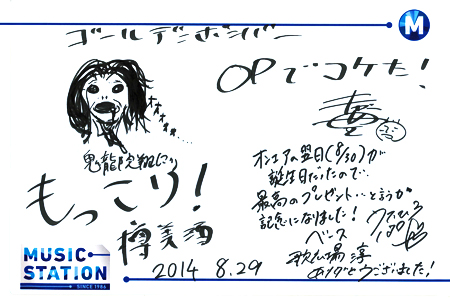 M
ゴールデンボンバー
OPでコケた！
オオオオ...
鬼龍院翔より
もっこり！
樽美酒
オンエアの翌日(8/30)が
誕生日だったので…
最高のプレゼント…というか
記念になりました！
ベース
歌広場淳
ありがとうございました！
MUSIC
STATION
SINCE 1986
2014 8.29